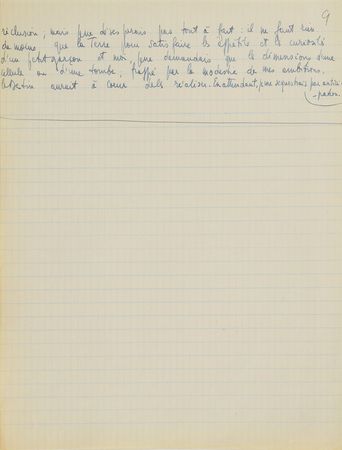 9
réclusion ; mais je ne désespérais pas tout à fait : il ne faut rien
de moins que la Terre pour satisfaire les appétits et la curiosité
d'un petit garçon et moi, je ne demandais que les dimensions d'une
cellule ou d'une tombe ; frappé par la modestie de mes ambitions,
le Destin aurait à cœur de les réaliser. En attendant, je me séquestrais par antici
-pation.